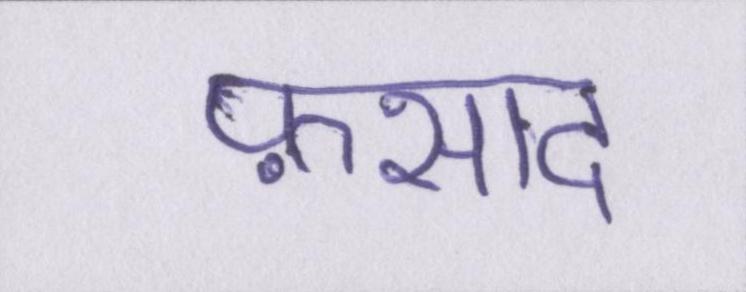 फ़साद